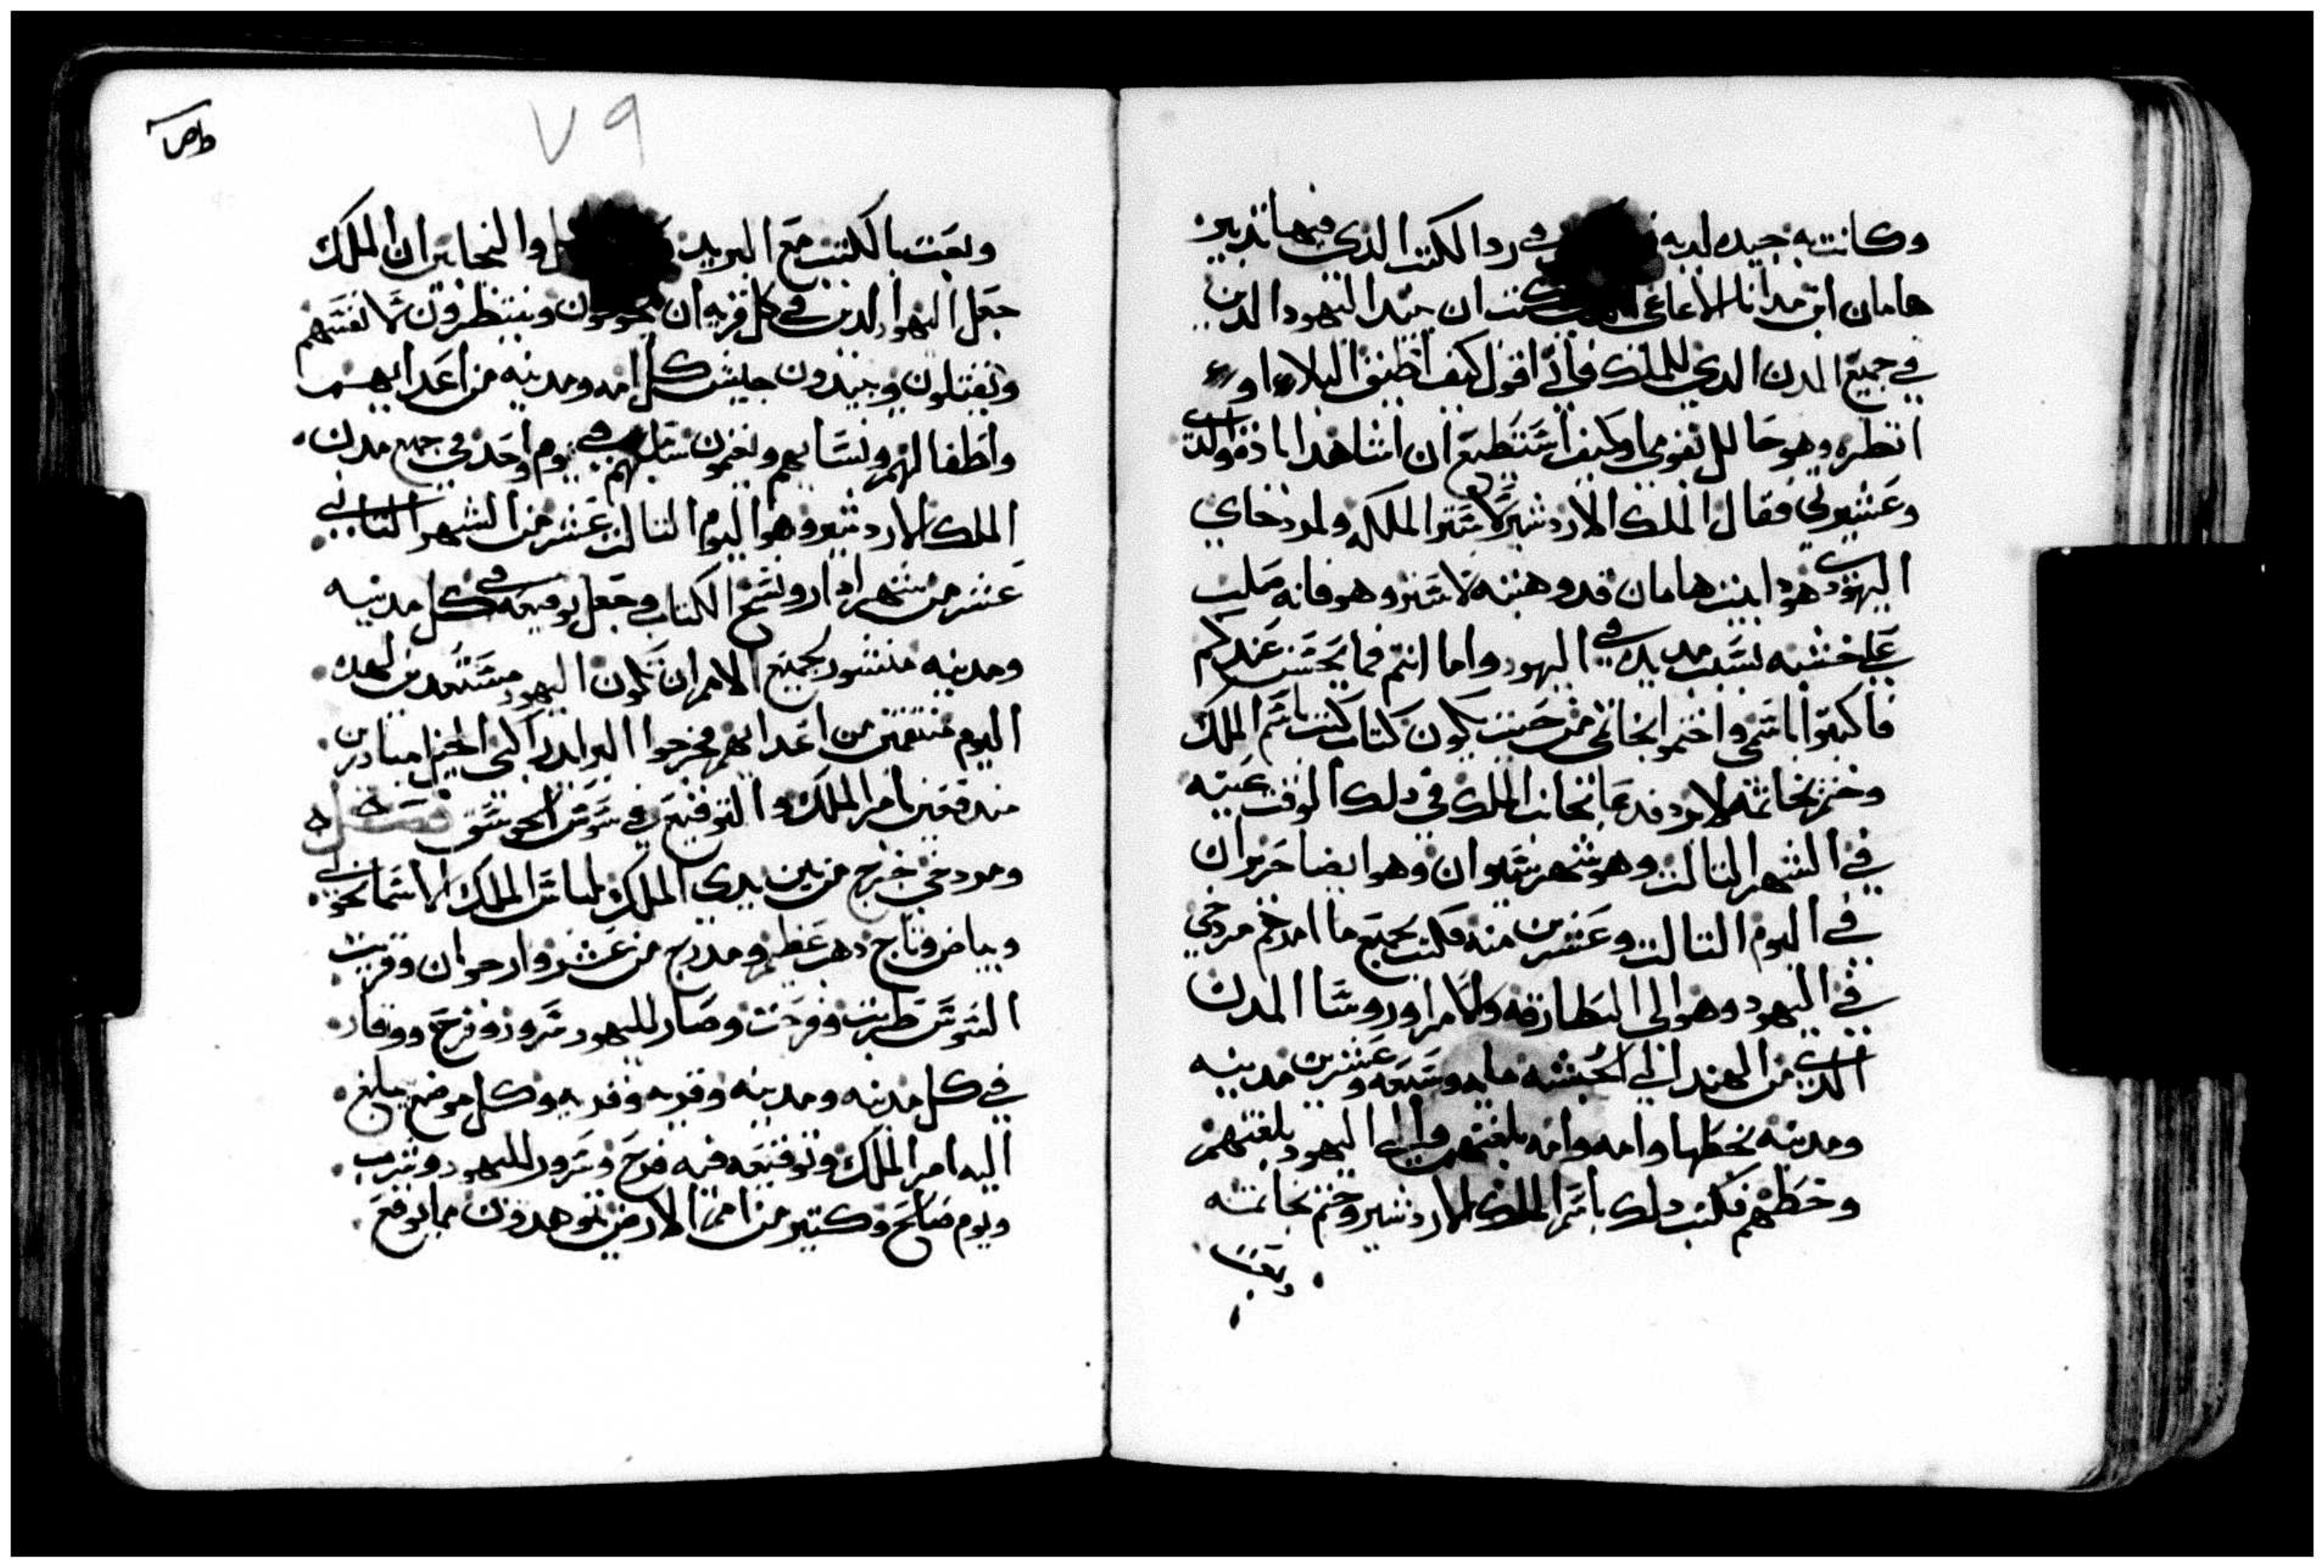 وكانت به جيده لديه في رد الكتب الذي فيها تدبير
هامان ابن مداثا الاغاغي كتب ان يبيد اليهود الذين
في جميع المدن الذي للملك فاني اقول كيف اطيق البلاء او
انظره وهو حالل بقومي او كيف استطيع ان اشاهد اباده والدت
وعشيرتي فقال الملك الاردشير لاستر الملكه ولمردخاي
اليهودي هودا بيت هامان قد وهبته لاستر وهو فانه صلب
علي خشبه بسبب مد يده في اليهود واما انتم فما يحسن عندكم
فاكتبوا باسمي واختموا بخاتمي من حيث يكون كتاب كتب باسم الملك
وختم بخاتمه لا يرد فدعا بكتاب الملك في ذلك الوقت عينه
في الشهر الثالث وهو شهر سيوان وهو ايضا حزيران
في اليوم الثالث وعشرين منه فكتب بجميع ما امرهم مردخي
في اليهود وهو الي البطارقه والامرا وروسا المدن
الذي من الهند الي الحبشه مايه وسبعه وعشرين مدينه
ومدينه بخطها وامه وامه بلغتهم والي اليهود بلغتهم
وخطهم فكتب ذلك باسم الملك الاردشير وختم بخاتمه
وبعث
٧٩
وبعث بالكتب مع البريد والنجابين ان الملك
جعل اليهود الذين في كل قريه ان يجوون وينتظرون علا نفسهم
ويقتلون ويبيدون جيش كل امه ومدينه من اعدايهم
واطفالهم ونسايهم ويغنمون سلبهم في يوم واحد في جميع مدن
الملك الاردشير وهو اليوم الثالث عشر من الشهر الثاني
عشر من شهر ادار ونسخ الكتاب وجعل توقيعه في كل مدينه
ومدينه منشور لجميع الامم ان تكون اليهود مستعدين لهذه
اليوم منتقمين من اعدايهم فخرجوا البرايد راكبي الخيل مبادرين
مندفعين بامر الملك والتوقيع في سوس الجوسق
ومردخي خرج من بين يدي الملك بلباس الملك الاسمانجوني
وبياض وتاج دهب عظيم ومدرج من عشر وارجوان وقريت
السوس طربت وفرحت وصار لليهود سرور وفرح ووقار
في كل مدينه ومدينه وقريه وقريه وكل موضع يبلغ
اليه امر الملك وتوقيعه فيه فرح وسرور لليهود وشرب
ويوم صالح وكثير من امم الارض تهودون مما توقع